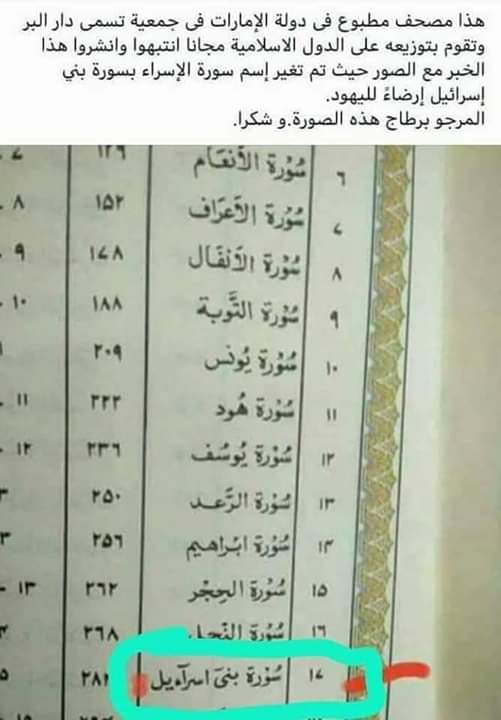 هذا مصحف مطبوع فى دولة الإمارات فى جمعية تسمى دار البر
وتقوم بتوزيعه على الدول الاسلامية مجانا انتبهوا وانشروا هذا
الخبر مع الصور حيث تم تغير إسم سورة الإسراء بسورة بني
إسرائيل إرضاءً لليهود.
المرجو برطاج هذه الصورة.و شكرا.
٦ سُوْرَة الأنعَام ١٢٩
٧ سُوْرَة الأعرَاف ١٥٢ ٨
٨ سُوْرَة الأنفَال ١٧٨ ٩
٩ سُوْرَة التَّوبَة ١٨٨ ١٠
١٠ سُوْرَة يُونس ٢٠٩
١١ سُوْرَة هُود ٢٢٢ ١١
١٢ سُوْرَة يُوسُف ٢٣٦ ١٢
١٣ سُوْرَة الرَّعد ٢٥٠
١٤ سُوْرَة ابْراهِيم ٢٥٦
١٥ سُوْرَة الحِجْر ٢٦٢ ١٣
١٦ سُوْرَة النَّحل ٢٦٨
١٧ سُوْرَة بَنىٓ اسرآءيل